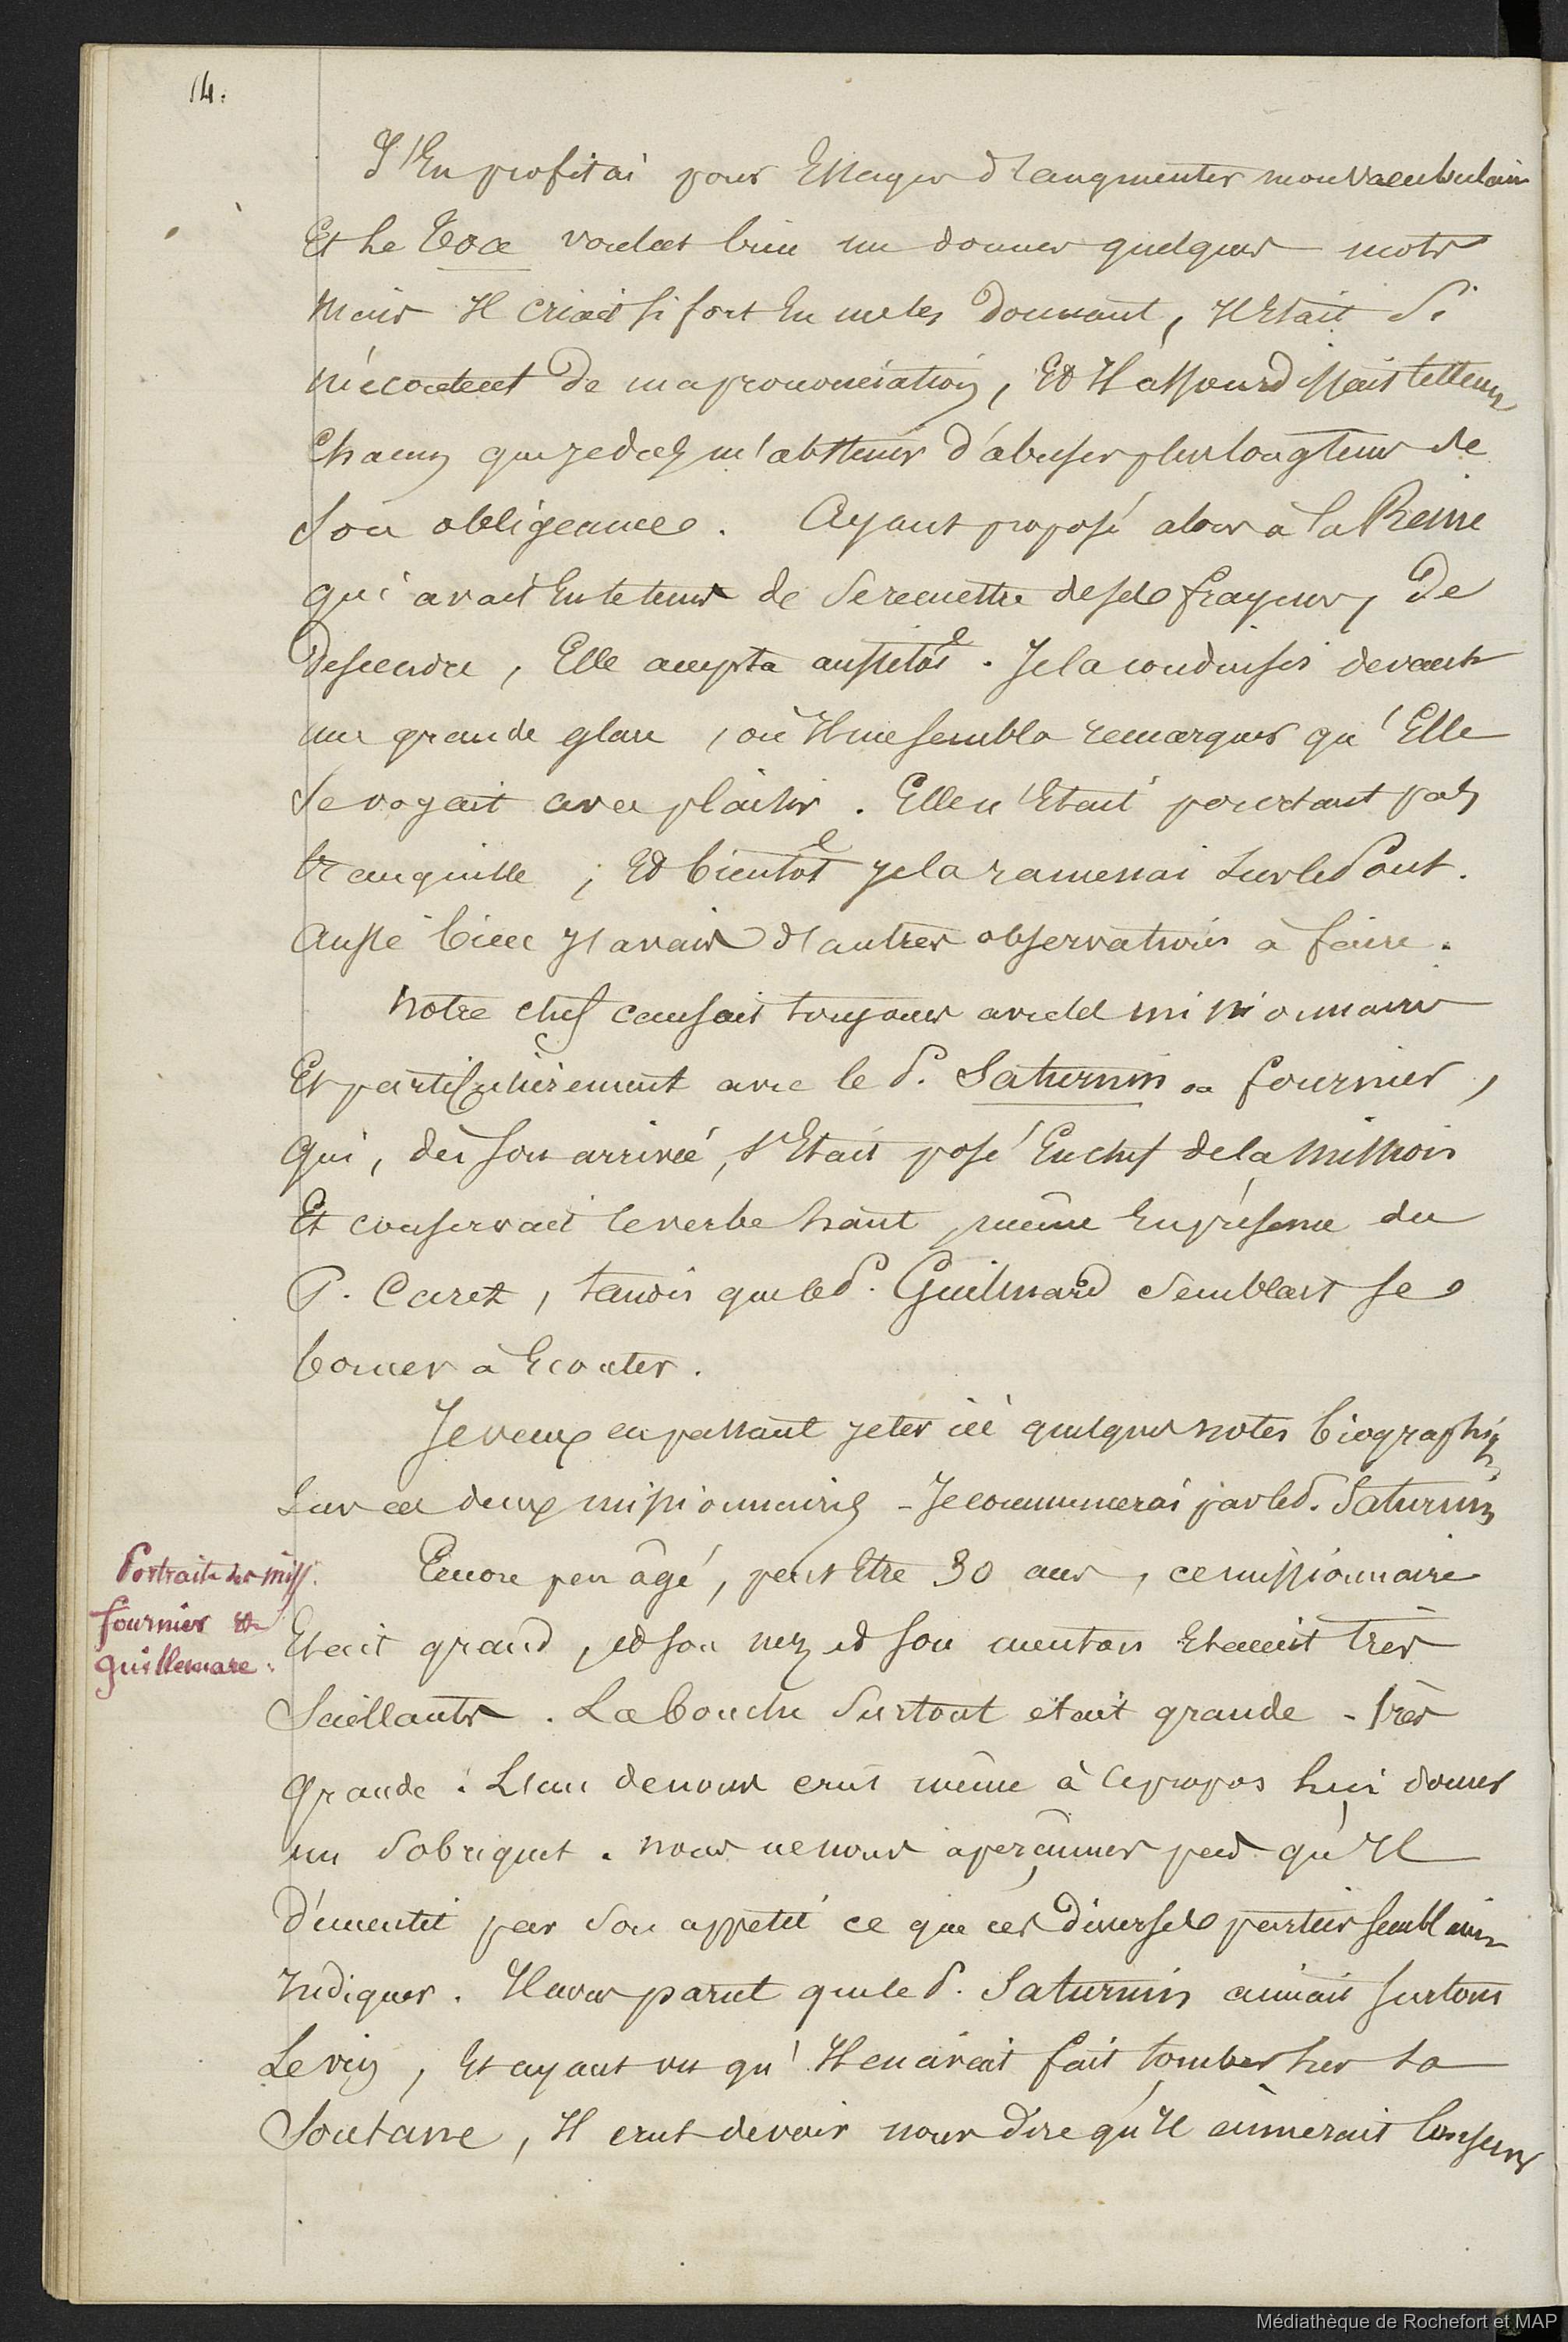 14.
J'En profitai pour Essayer d'augmenter mon vocabulaire
Et le Toa voulut bien me donner quelques mots
mais Il criait si fort En me les donnant, Il Etait si
mécontent de ma prononciation, Et Il assourdissait tellem^t
chacun que je dus m'abstenir d'abuser plus longtems de
son obligeance. Ayant proposé alors à la Reine
qui avait Eu le tems de se remettre de ses frayeurs, de
descendre, Elle accepta aussitot. Je la conduisis devant
une grande glace, où Il me sembla remarquer qu'Elle
se voyait avec plaisir. Elle n'Etait pourtant pas
tranquille; Et bientot je la ramenai sur le Pont.
Aussi bien j'avais d'autres observations à faire.
Notre chef causait toujours avec les missionnaires
Et particulièrement avec le P. Saturnin ou fournier,
qui, dès son arrivée, s'Etait posé En chef de la mission
Et conservait le verbe haut, même En présence du
P. Caret, tandis que le P. Guilmard semblait se
borner à Ecouter.
Je veux en passant jeter ici quelques notes biographiq
sur ces deux missionnaires - Je commencerai par le P. Saturnin
Portraits des miss.
fournier et
guillemare.
Encore peu âgé, peut Etre 30 ans, ce missionnaire
Etait grand, et son nez et son menton Etaient très
saillants. La bouche surtout etait grande - très
grande. L'un de nous crut même à ce propos lui donner
un sobriquet. nous ne nous aperçumes pas qu'Il
démentit par son appetit ce que ces diverses parties semblaient
Indiquer. Il nous parut que le P. Saturnin aimait surtout
Le vin, Et ayant vu qu'Il en avait fait tomber sur sa
Soutane, Il crut devoir nous dire qu'Il aimerait